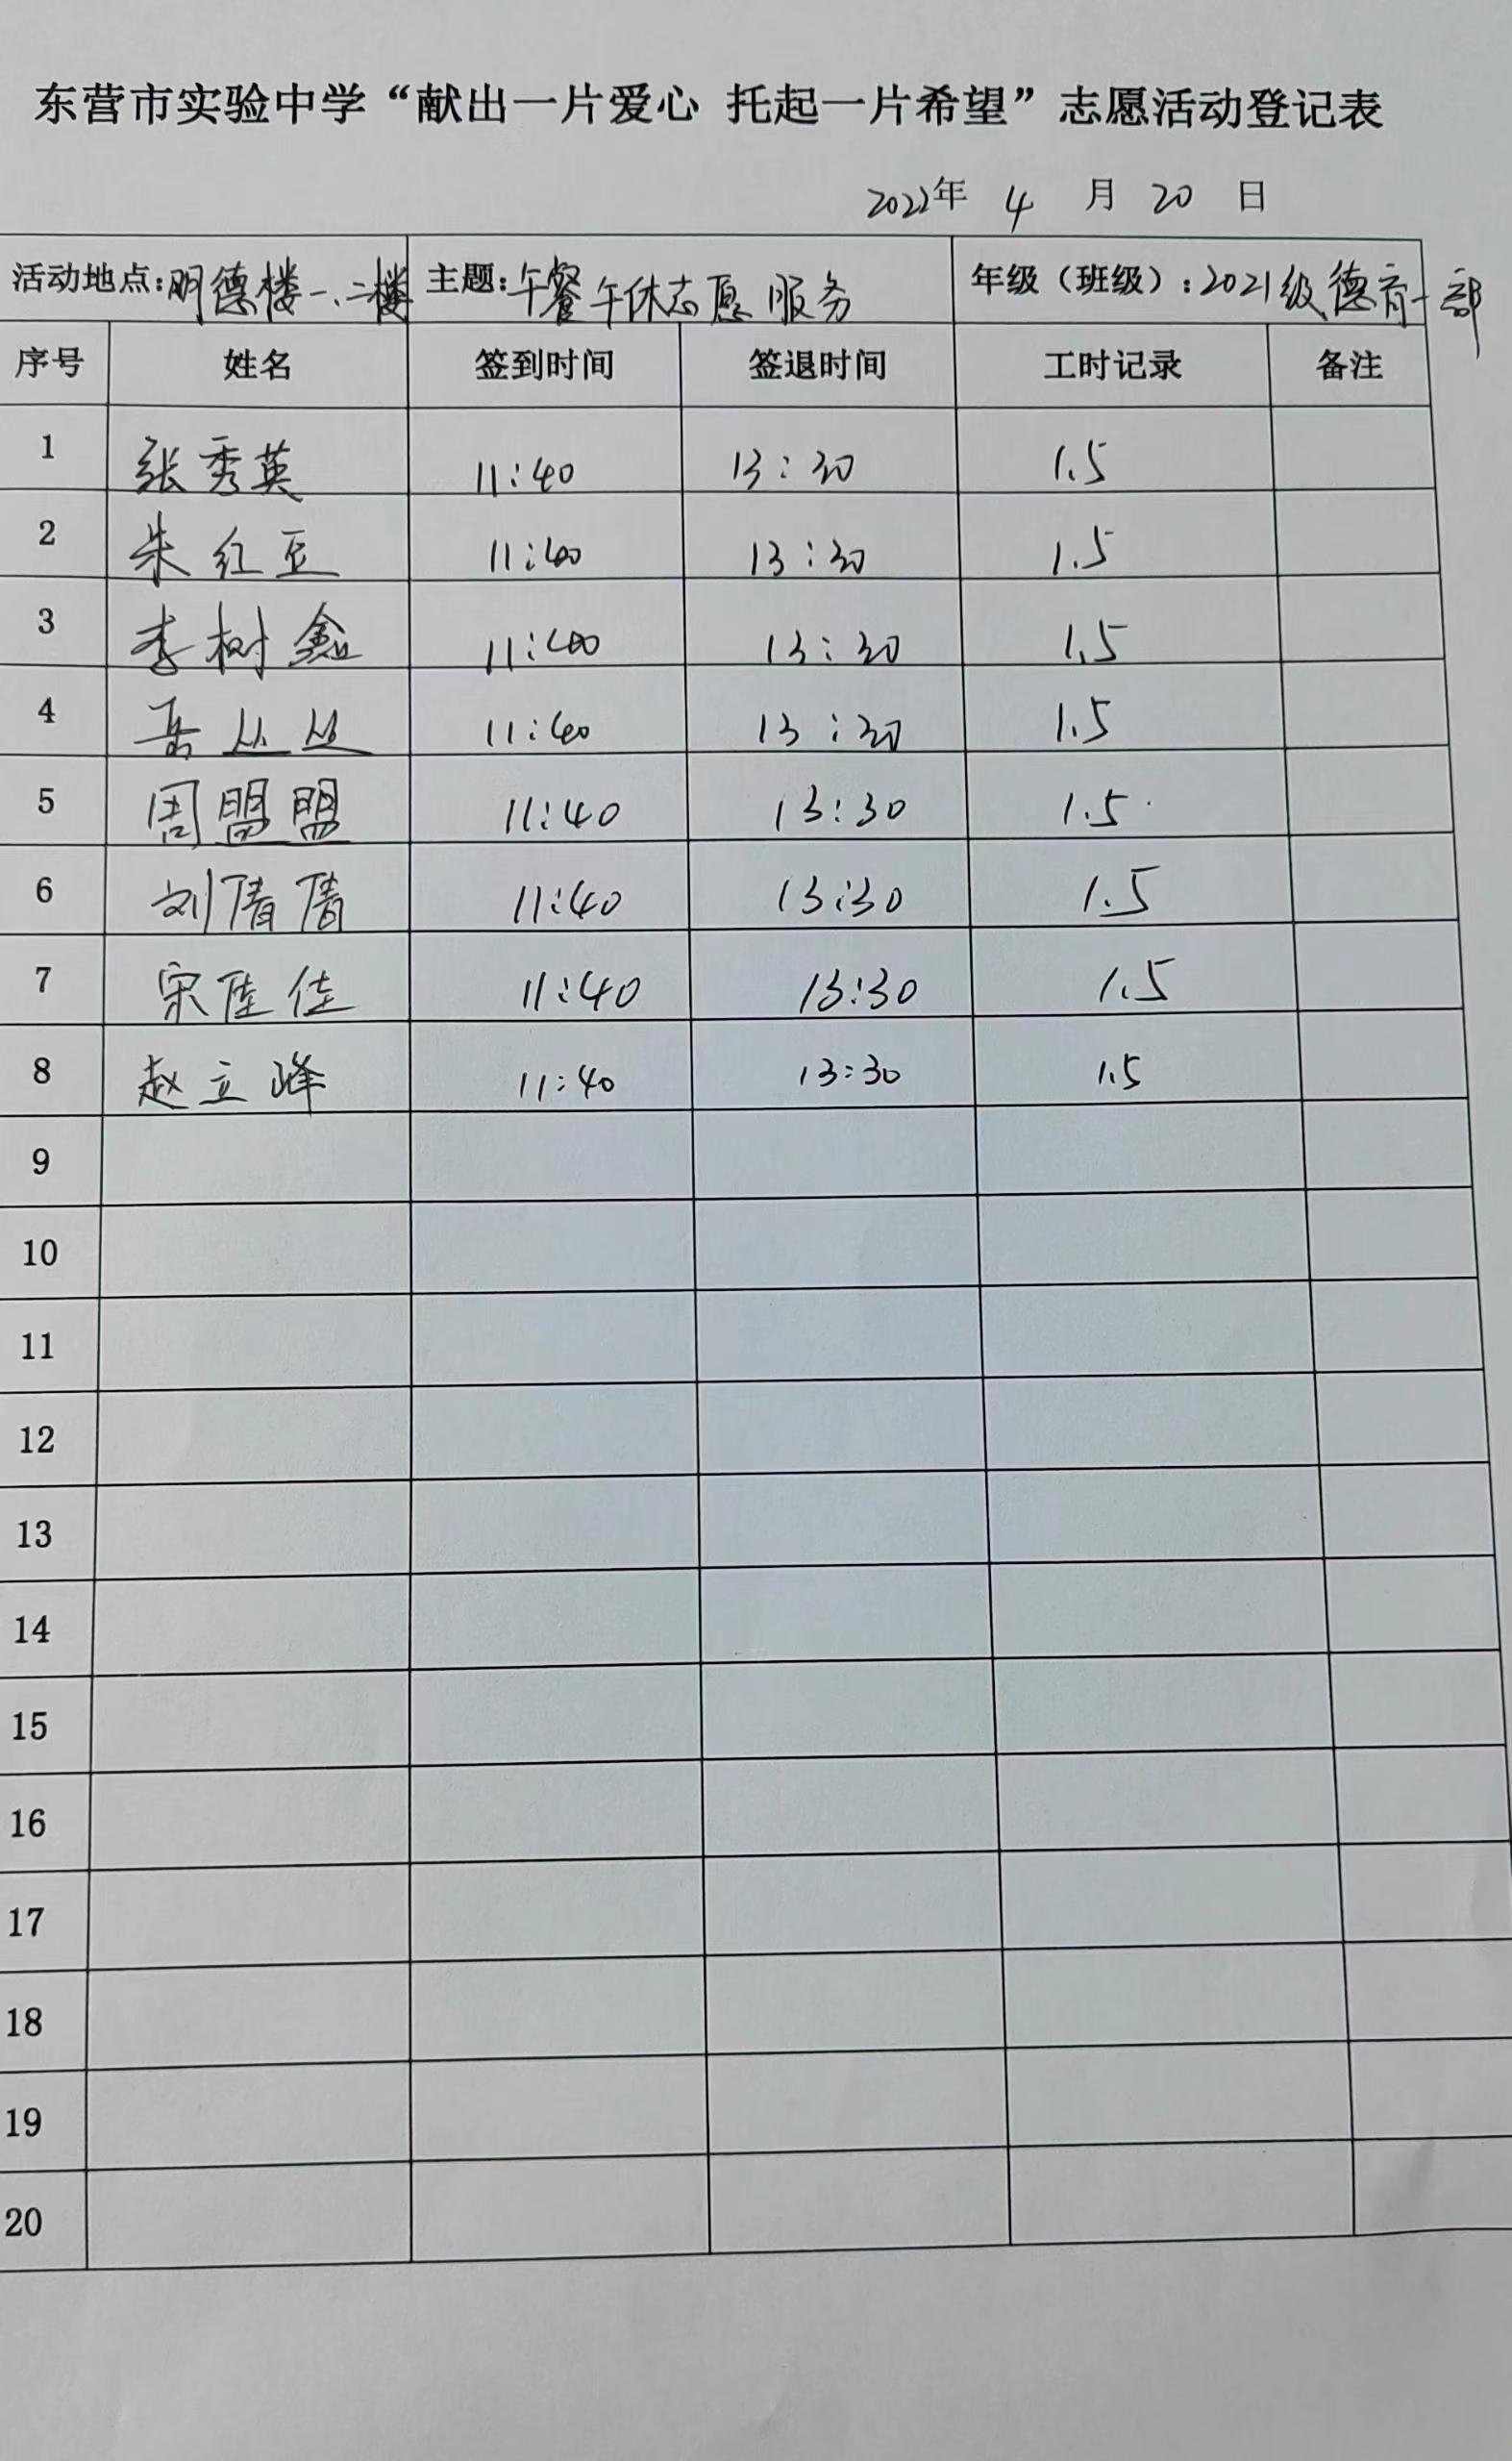 东营市实验中学“献出一片爱心 托起一片希望”志愿活动登记表
2022年 4 月 20 日
活动地点:明德楼一、二楼 主题:午餐午休志愿服务 年级（班级）:2021级德育一部
序号 姓名 签到时间 签退时间 工时记录 备注
1 张秀英 11:40 13:30 1.5
2 朱红豆 11:40 13:30 1.5
3 李树鑫 11:40 13:30 1.5
4 岳丛丛 11:40 13:30 1.5
5 周盟盟 11:40 13:30 1.5
6 刘倩倩 11:40 13:30 1.5
7 宋佳佳 11:40 13:30 1.5
8 赵立峰 11:40 13:30 1.5
9
10
11
12
13
14
15
16
17
18
19
20